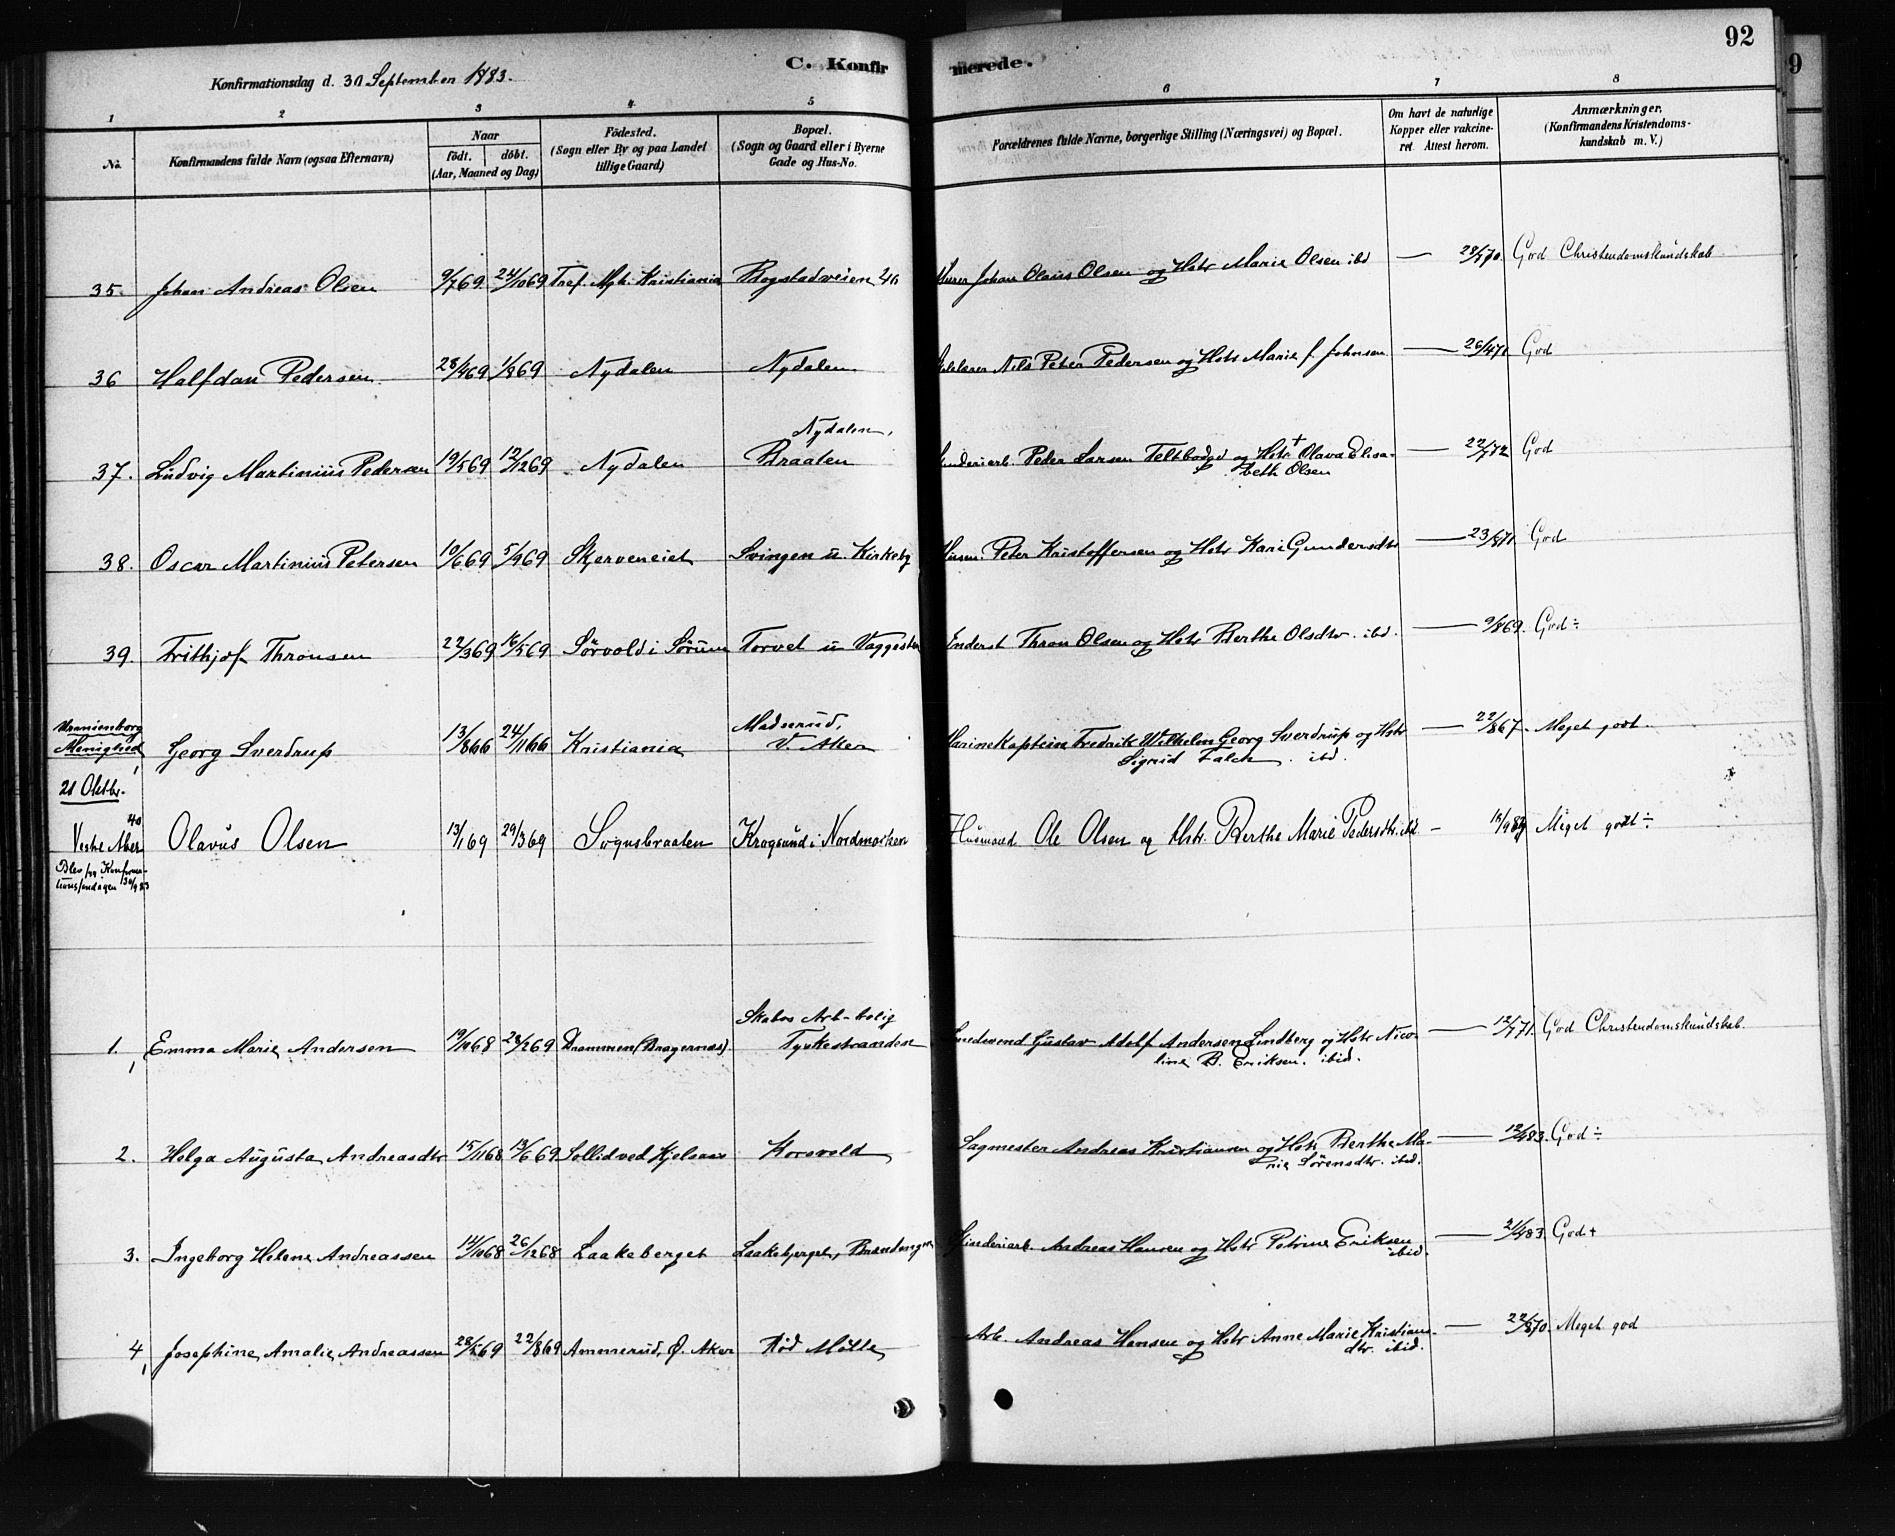 92
9
C. Konfirmerede.
Konfirmationsdag d. 30 September 1883.
1 2 3 4 5 6 7 8
No. Konfirmandens fulde Navn (ogsaa Efternavn) Naar födt. döbt. (Aar, Maaned og Dag) Födested. (Sogn eller By og paa Landet tillige Gaard) Bopæl. (Sogn og Gaard eller i Byerne Gade og Hus-No. Forældrenes fulde Navne, borgerlige Stilling (Næringsvei) og Bopæl. Om havt de naturlige Kopper eller vakcineret. Attest herom. Anmærkninger. (Konfirmandens Kristendomskundskab m. V.)
35. Johan Andreas Olsen 9/7 69 24/10 69 Tref. Mgh. Kristiania Bogstadveien Johan Olaus Olsen og Hstr Marie Olsen ibd — 28/5 70. God Christendomskundskab
36 Halfdan Pedersen 28/4 69 1/8 69 Nydalen Nydalen Nils Peter Pedersen og Hstr Marie f. Johnsen — 26/4 71 God
Nydalen,
37. Ludvig Martinius Pedersen 19/5 69 12/12 69 Nydalen Braaten Peder Larsen Feltbodød og Hstr + Olava Elisa-
beth Olsen — 22/7 72 God
38. Oscar Martinius Petersen 10/6 69 5/9 69 Skjerveneiet Svingen u. Kirkeby Husm. Peter Kristoffersen og Hstr Kari Gundersdtr — 23/8 71. God
39. Frithjof Thronsen 22/3 69 16/5 69 Sörvold i Sörum Torvet u Vaggesten Thron Olsen og Hstr Berthe Olsdtr. ibd. — 9/8 69. God ÷
Uranienborg
Menighed Georg Sverdrup 13/8 66 24/11 66 Kristiania Madserud,
V. Aker Marinekaptein Fredrik Wilhelm Georg Sverdrup og Hstr
Sigrid Falch. ibd. — 22/8 67. Meget godt.
21 Oktbr.
40
Vestre Aker Olavus Olsen 13/1 69 29/3 69 Sognsbraaten Kragsund i Nordmarken Husmand Ole Olsen og Hstr Berthe Marie Pedersdtr. ibd — Meget godt ÷
Blev syg Konfirma-
tionssøndagen 30/9 83
Skabos Arb-bolig
1. Emma Marie Andersen 19/10 68 28/2 69 Drammen (Bragernæs). Tyskestranden Smedsvend Gustav Adolf Andersen Lindberg og Hstr Nico-
line B. Eriksen. ibid. — 12/7 71. God Christendomskundskab.
2. Helga Augusta Andreasdtr 15/11 68 13/6 69 Sollid ved Kjelsaas Korsvold Sagmester Andreas Kristiansen og Hstr Berthe Ma-
rie Sörensdtr. ibid. — 12/4 83. God ÷
3. Ingeborg Helene Andreassen 14/10 68 26/12 68 Laakeberget Laakeberget, Brændengen Andreas Hansen og Hstr Petrine Eriksen
ibid. — 21/4 83. God +
4, Josephine Amalie Andreassen 28/5 69 22/8 69 Ammerud, Ø. Aker Rød Mølle Arb. Andreas Hansen og Hstr Anne Marie Kristians-
dtr. ibid. — 22/8 70. Meget god